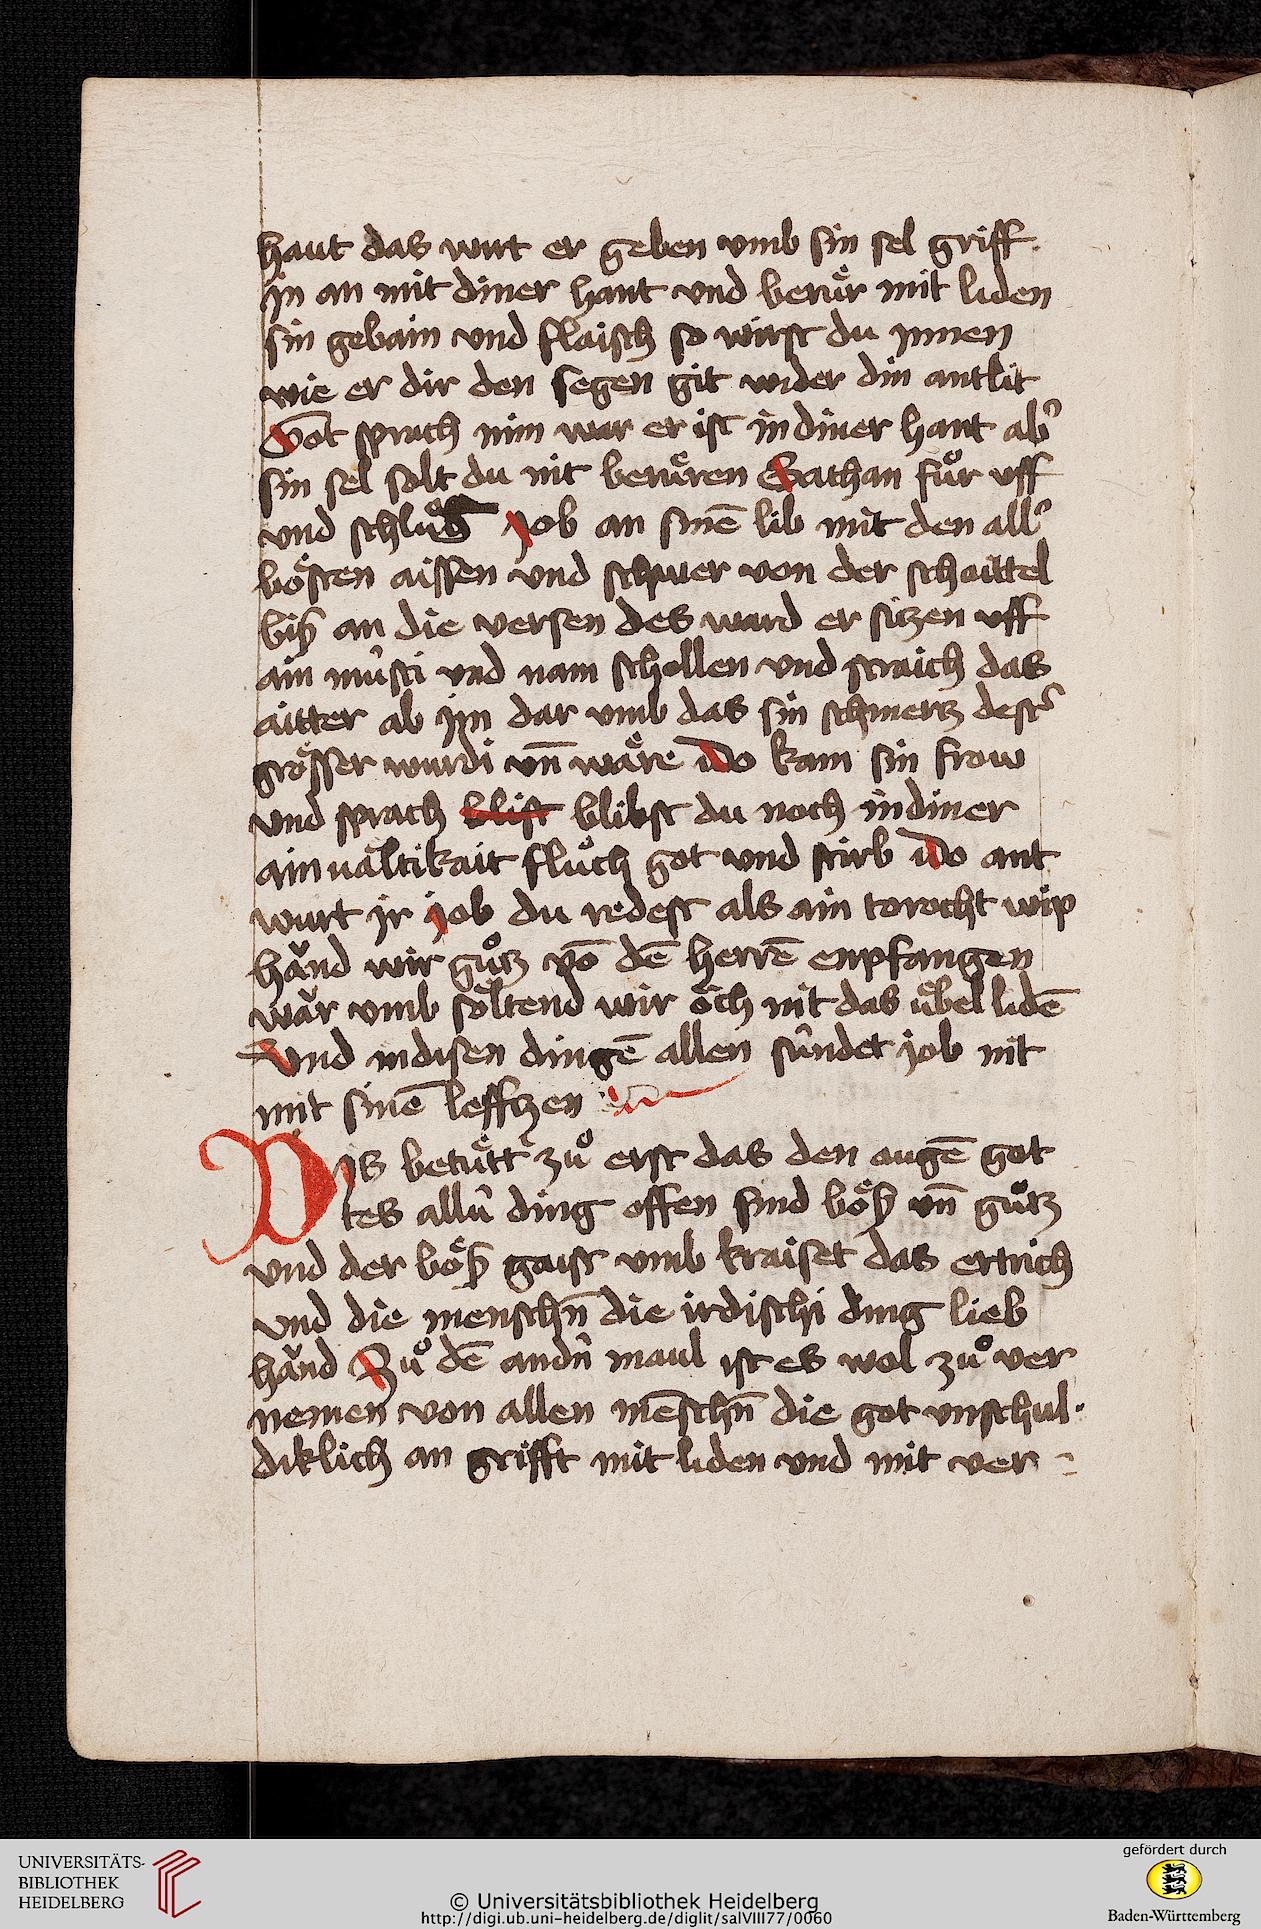 haut das wirt er geben vmb sin sel griff
in an mit diner hant vnd beruͤr mit liden
sin gebain vnd flaisch so wirst du jnnen
wie er dir den segen git wider din antlit
Got sprach nim war er ist in diner hant ab᾽
sin sel solt du nit beruͤren Sathan fuͦr vff
vnd schluͦg job an sinē lib mit den all᾽
boͤsten aissen vnd schwer von der schaittel
biß an die versen des ward er sitzen vff
ain mûsti vnd nam schollen vnd straich das
aitter ab jm dar vmb das sin schmertz dest᾽
groͤsser wurdi vn̄ waͤre Do kam sin frow
und sprach blist blibst du noch in diner
ainualtikait fluͦch got vnd stirb Do ant
wurt jr job du redest als ain torocht wip
haͮnd wir guͦtz vō dē herrē enpfangen
waͮr vmb soͤltend wir oͮch nit das uͤbel lidē
Vnd in disen dingē allen sûndet job nit
mit sinē leffzen
Dis betuͤtt᾽ zuͦ erst das den augē got
tes allû ding offen sind boͤß vn̄ guͦtz
vnd der boͤß gaist vmb kraiset das ertrich
vnd die menschn̄ die irdischi ding lieb
haͮnd Zuͦ dē andn̂ maul ist es wol zuͦ ver
nemen von allen mēschn̄ die got vnschul-
diklich an grifft mit liden vnd mit ver-
UNIVERSITÄTS-
BIBLIOTHEK
HEIDELBERG
© Universitätsbibliothek Heidelberg
http://digi.ub.uni-heidelberg.de/diglit/salVIII77/0060
gefördert durch
Baden-Württemberg